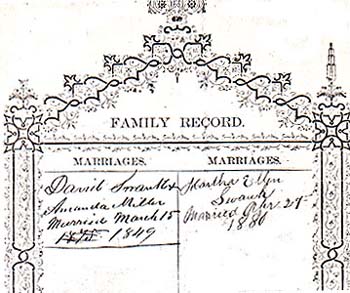 FAMILY RECORD.
MARRIAGES.
David Swank &
Amanda Miller
Married March 15
1849
MARRIAGES.
Martha Ellen
Swank
Married 27
1880